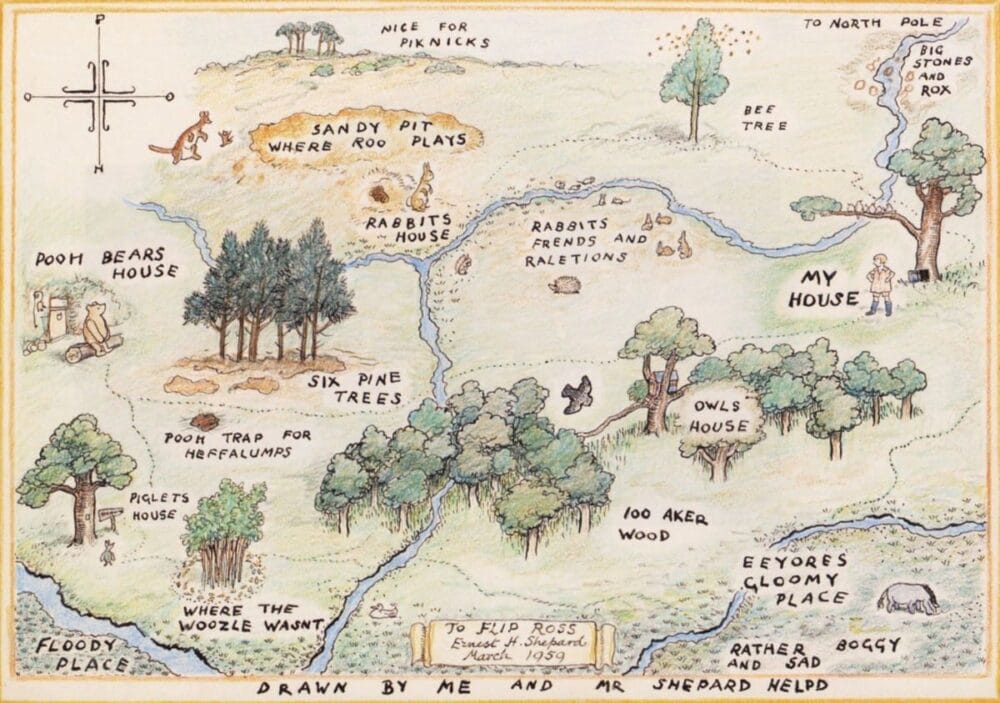 P
O
O
H
NICE FOR
PIKNICKS
TO NORTH POLE
BIG
STONES
AND
ROX
BEE
TREE
SANDY PIT
WHERE ROO PLAYS
RABBITS
HOUSE
RABBITS
FRENDS AND
RALETIONS
POOH BEARS
HOUSE
MY
HOUSE
SIX PINE
TREES
POOH TRAP FOR
HEFFALUMPS
OWLS
HOUSE
PIGLETS
HOUSE
100 AKER
WOOD
EEYORES
GLOOMY
PLACE
WHERE THE
WOOZLE WASNT
FLOODY
PLACE
TO FLIP ROSS
Ernest H. Shepard
March 1959
RATHER BOGGY
AND SAD
DRAWN BY ME AND MR SHEPARD HELPD